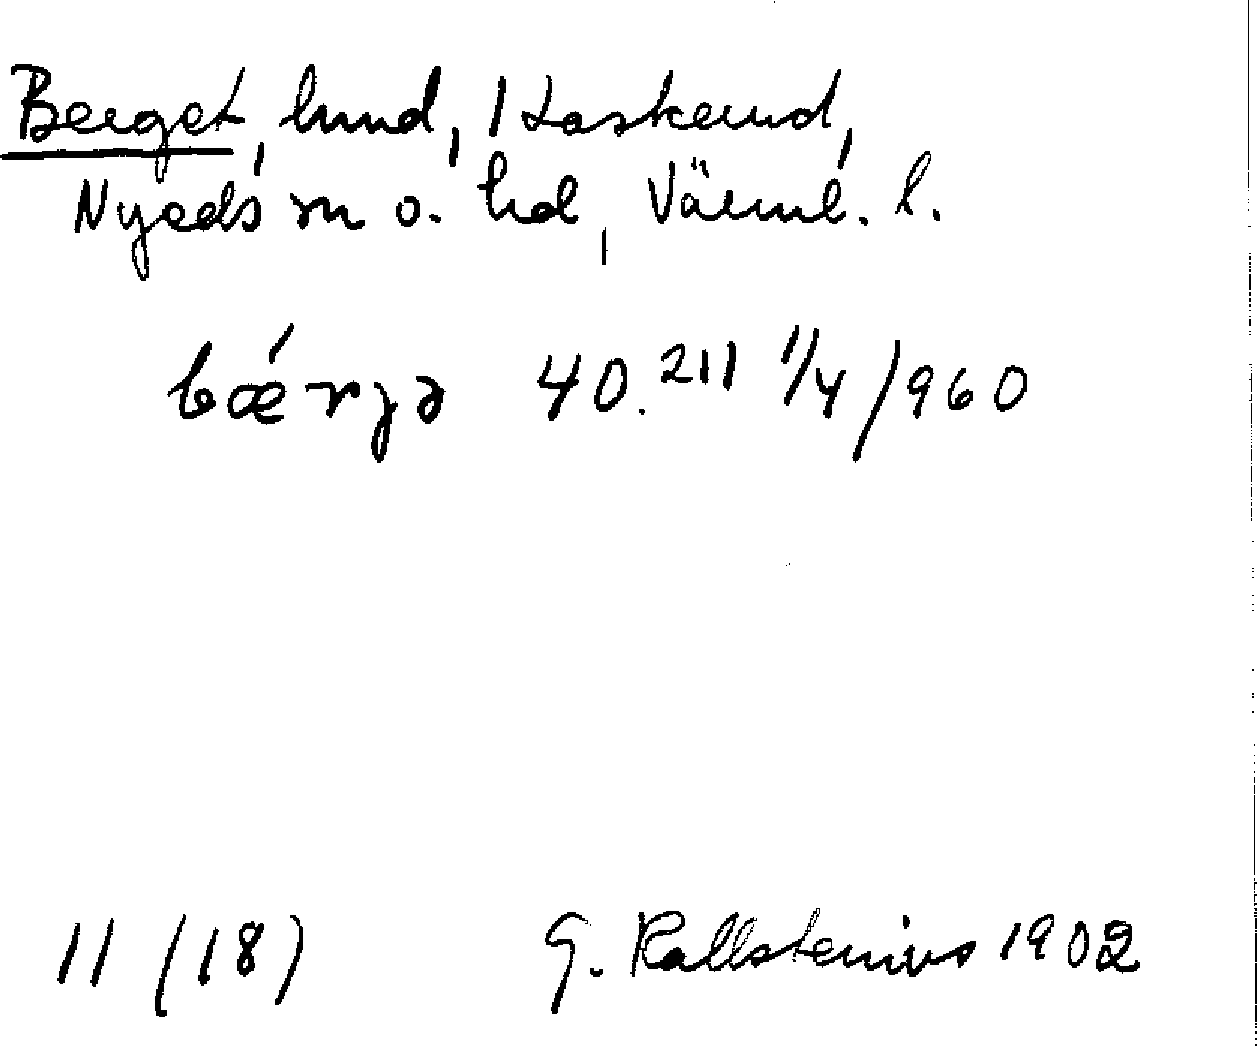 Berget, hmd, 1 Laskerud,
Nyeds sn o. hd, Värml. l.
bǽrjə 40.211 1/4/960
11 (18) G. Kallstenius 1902